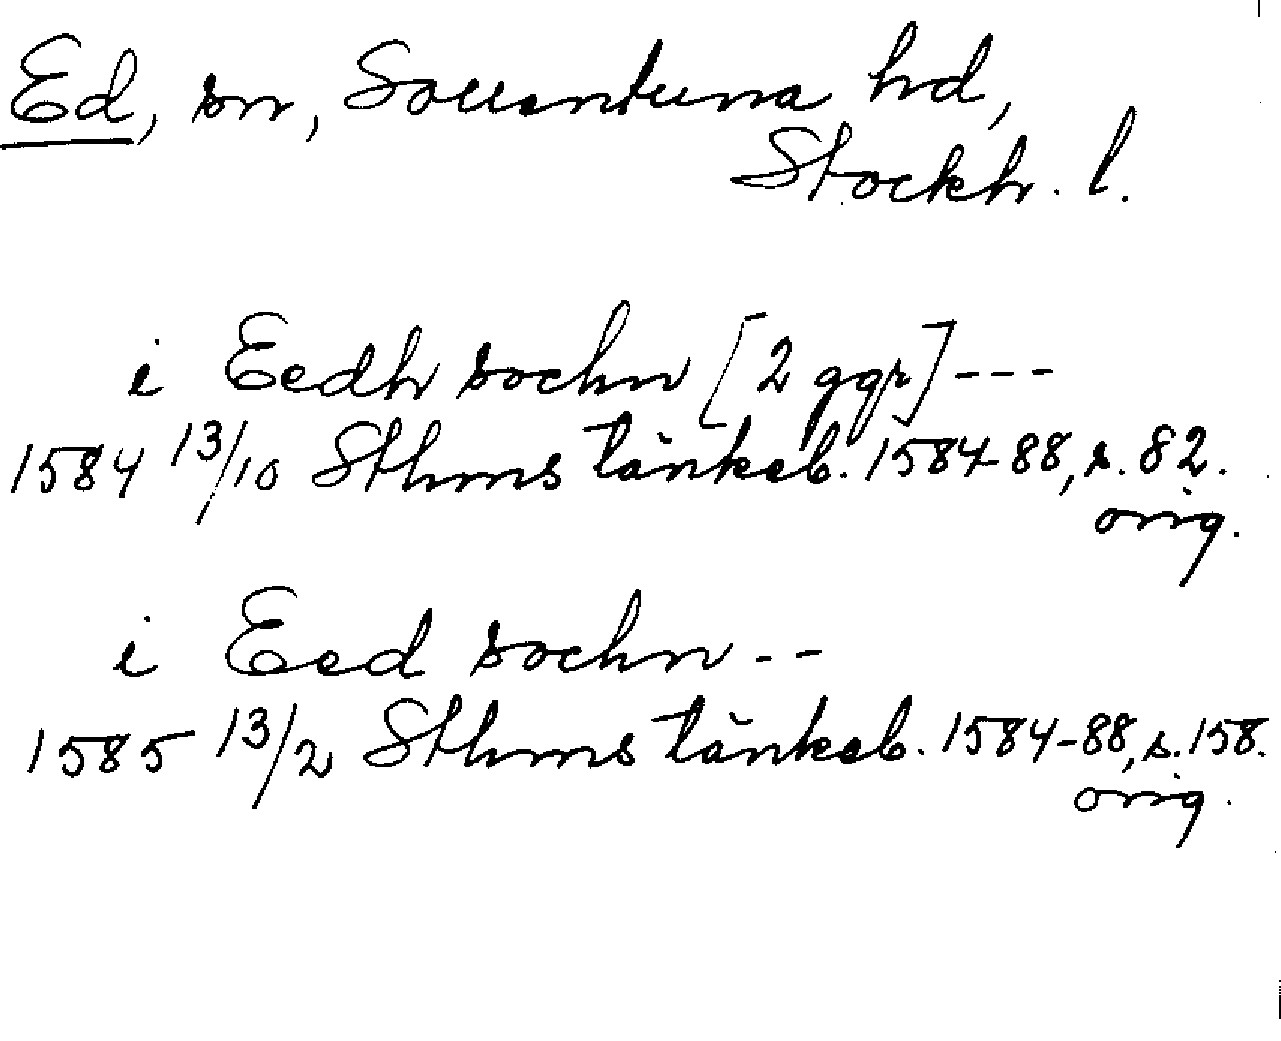 Ed, sn, Sollentuna hd,
Stockh. l.
i Eedh sochn [2 ggr] ---
1584 13/10 Sthms tänkeb. 1584-88, s. 82.
orig.
i Eed sochn --
1585 13/2 Sthms tänkeb. 1584-88, s. 158.
orig.